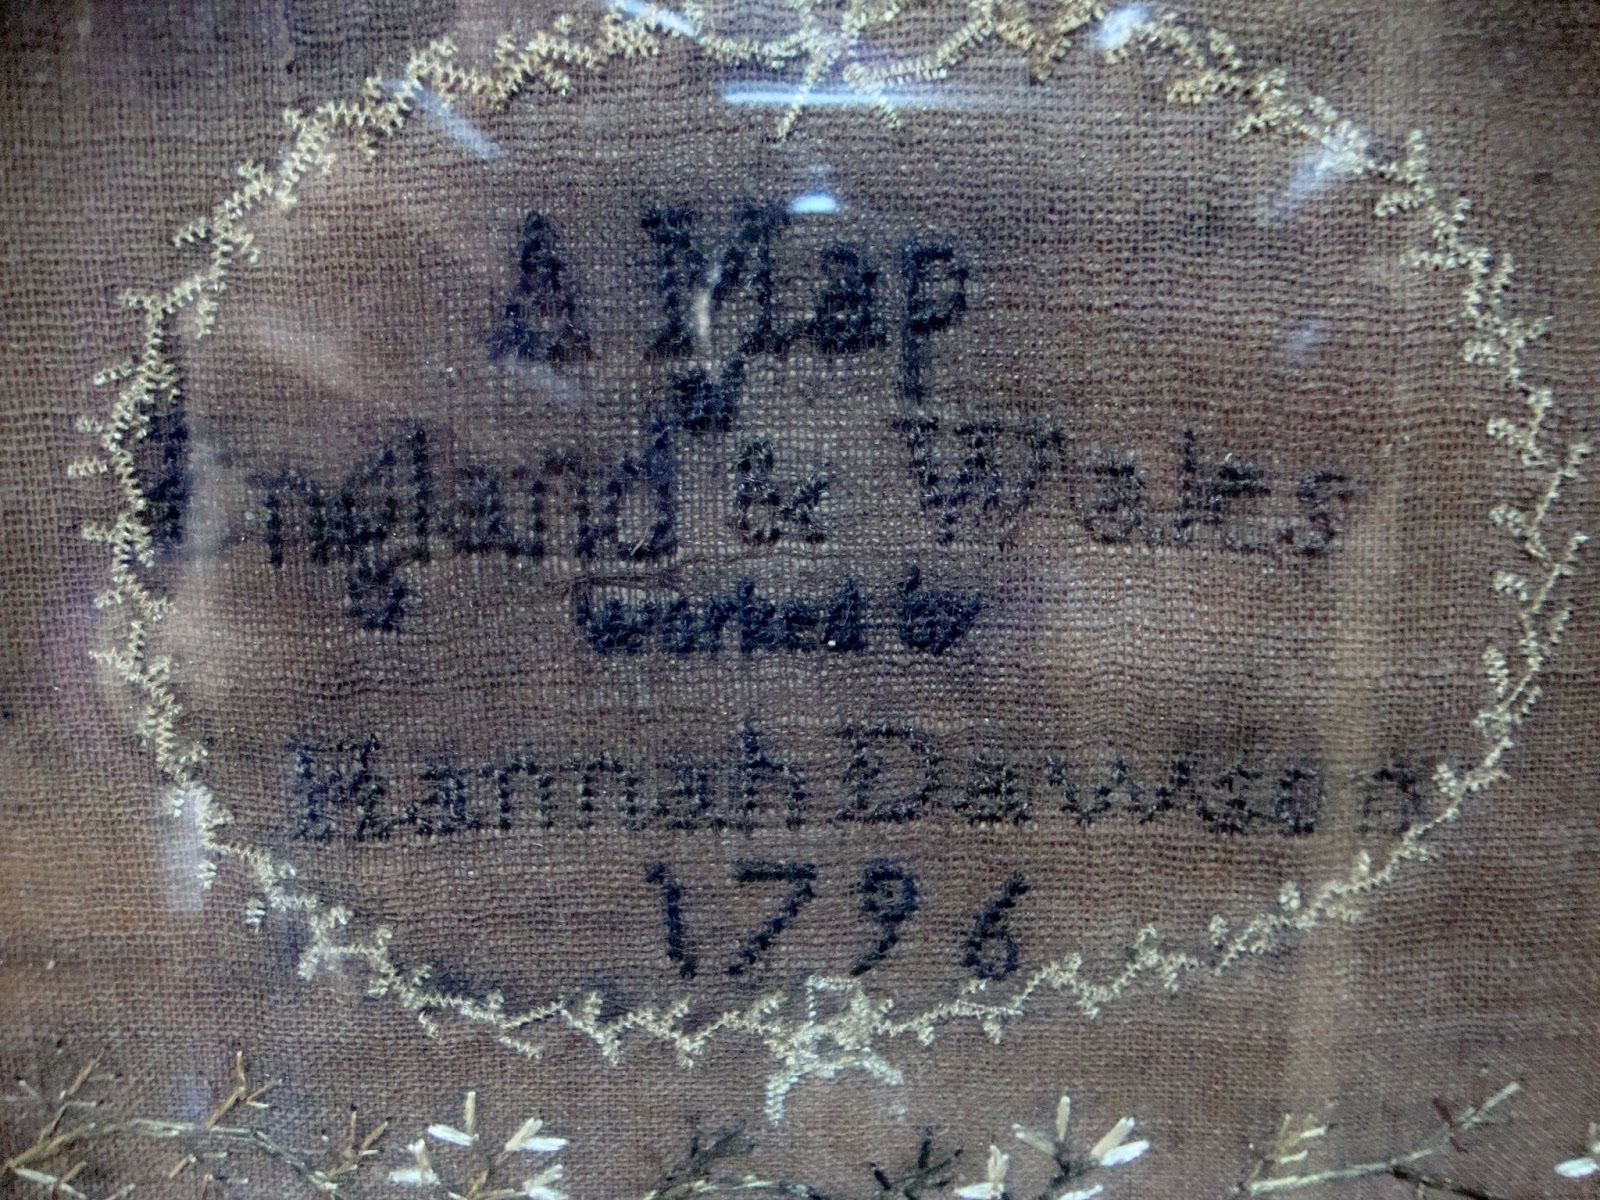 A Map
of
England & Wales
worked by
Hannah Dawson
1796